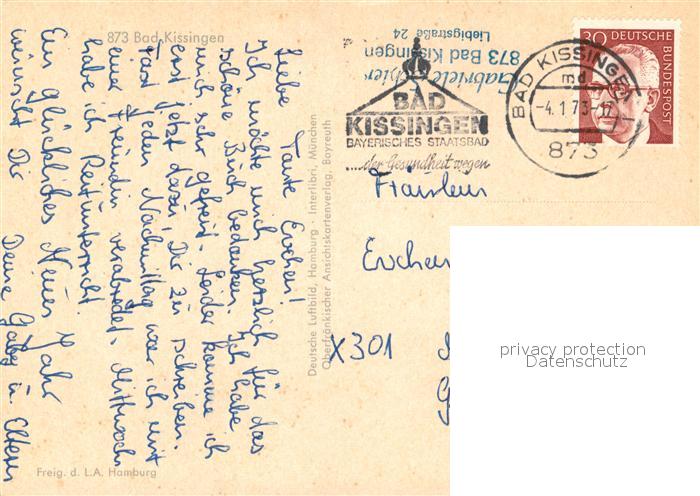 873 Bad Kissingen
Liebe Tante Evchen!
Ich möchte mich herzlich für das
schöne Buch bedanken. Ich habe
mich sehr gefreut. Leider komme ich
erst jetzt dazu, Dir zu schreiben.
Fast jeden Nachmittag war ich mit
einer Freundin verabredet. Mittwochs
habe ich Reitunterricht.
Ein glückliches Neues Jahr
wünscht Dir
Deine Gaby u. Eltern
Freig. d. L.A. Hamburg
Deutsche Luftbild, Hamburg · Interlibri, München
Oberfränkischer Ansichtskartenverlag, Bayreuth
Gabriele
873 Bad Kissingen
Liebigstraße 24
BAD
KISSINGEN
BAYERISCHES STAATSBAD
...der Gesundheit wegen
BAD KISSINGEN
md
-4.1.73-17
873
30 DEUTSCHE
BUNDESPOST
Fräulein
Evchen
X301
privacy protection
Datenschutz